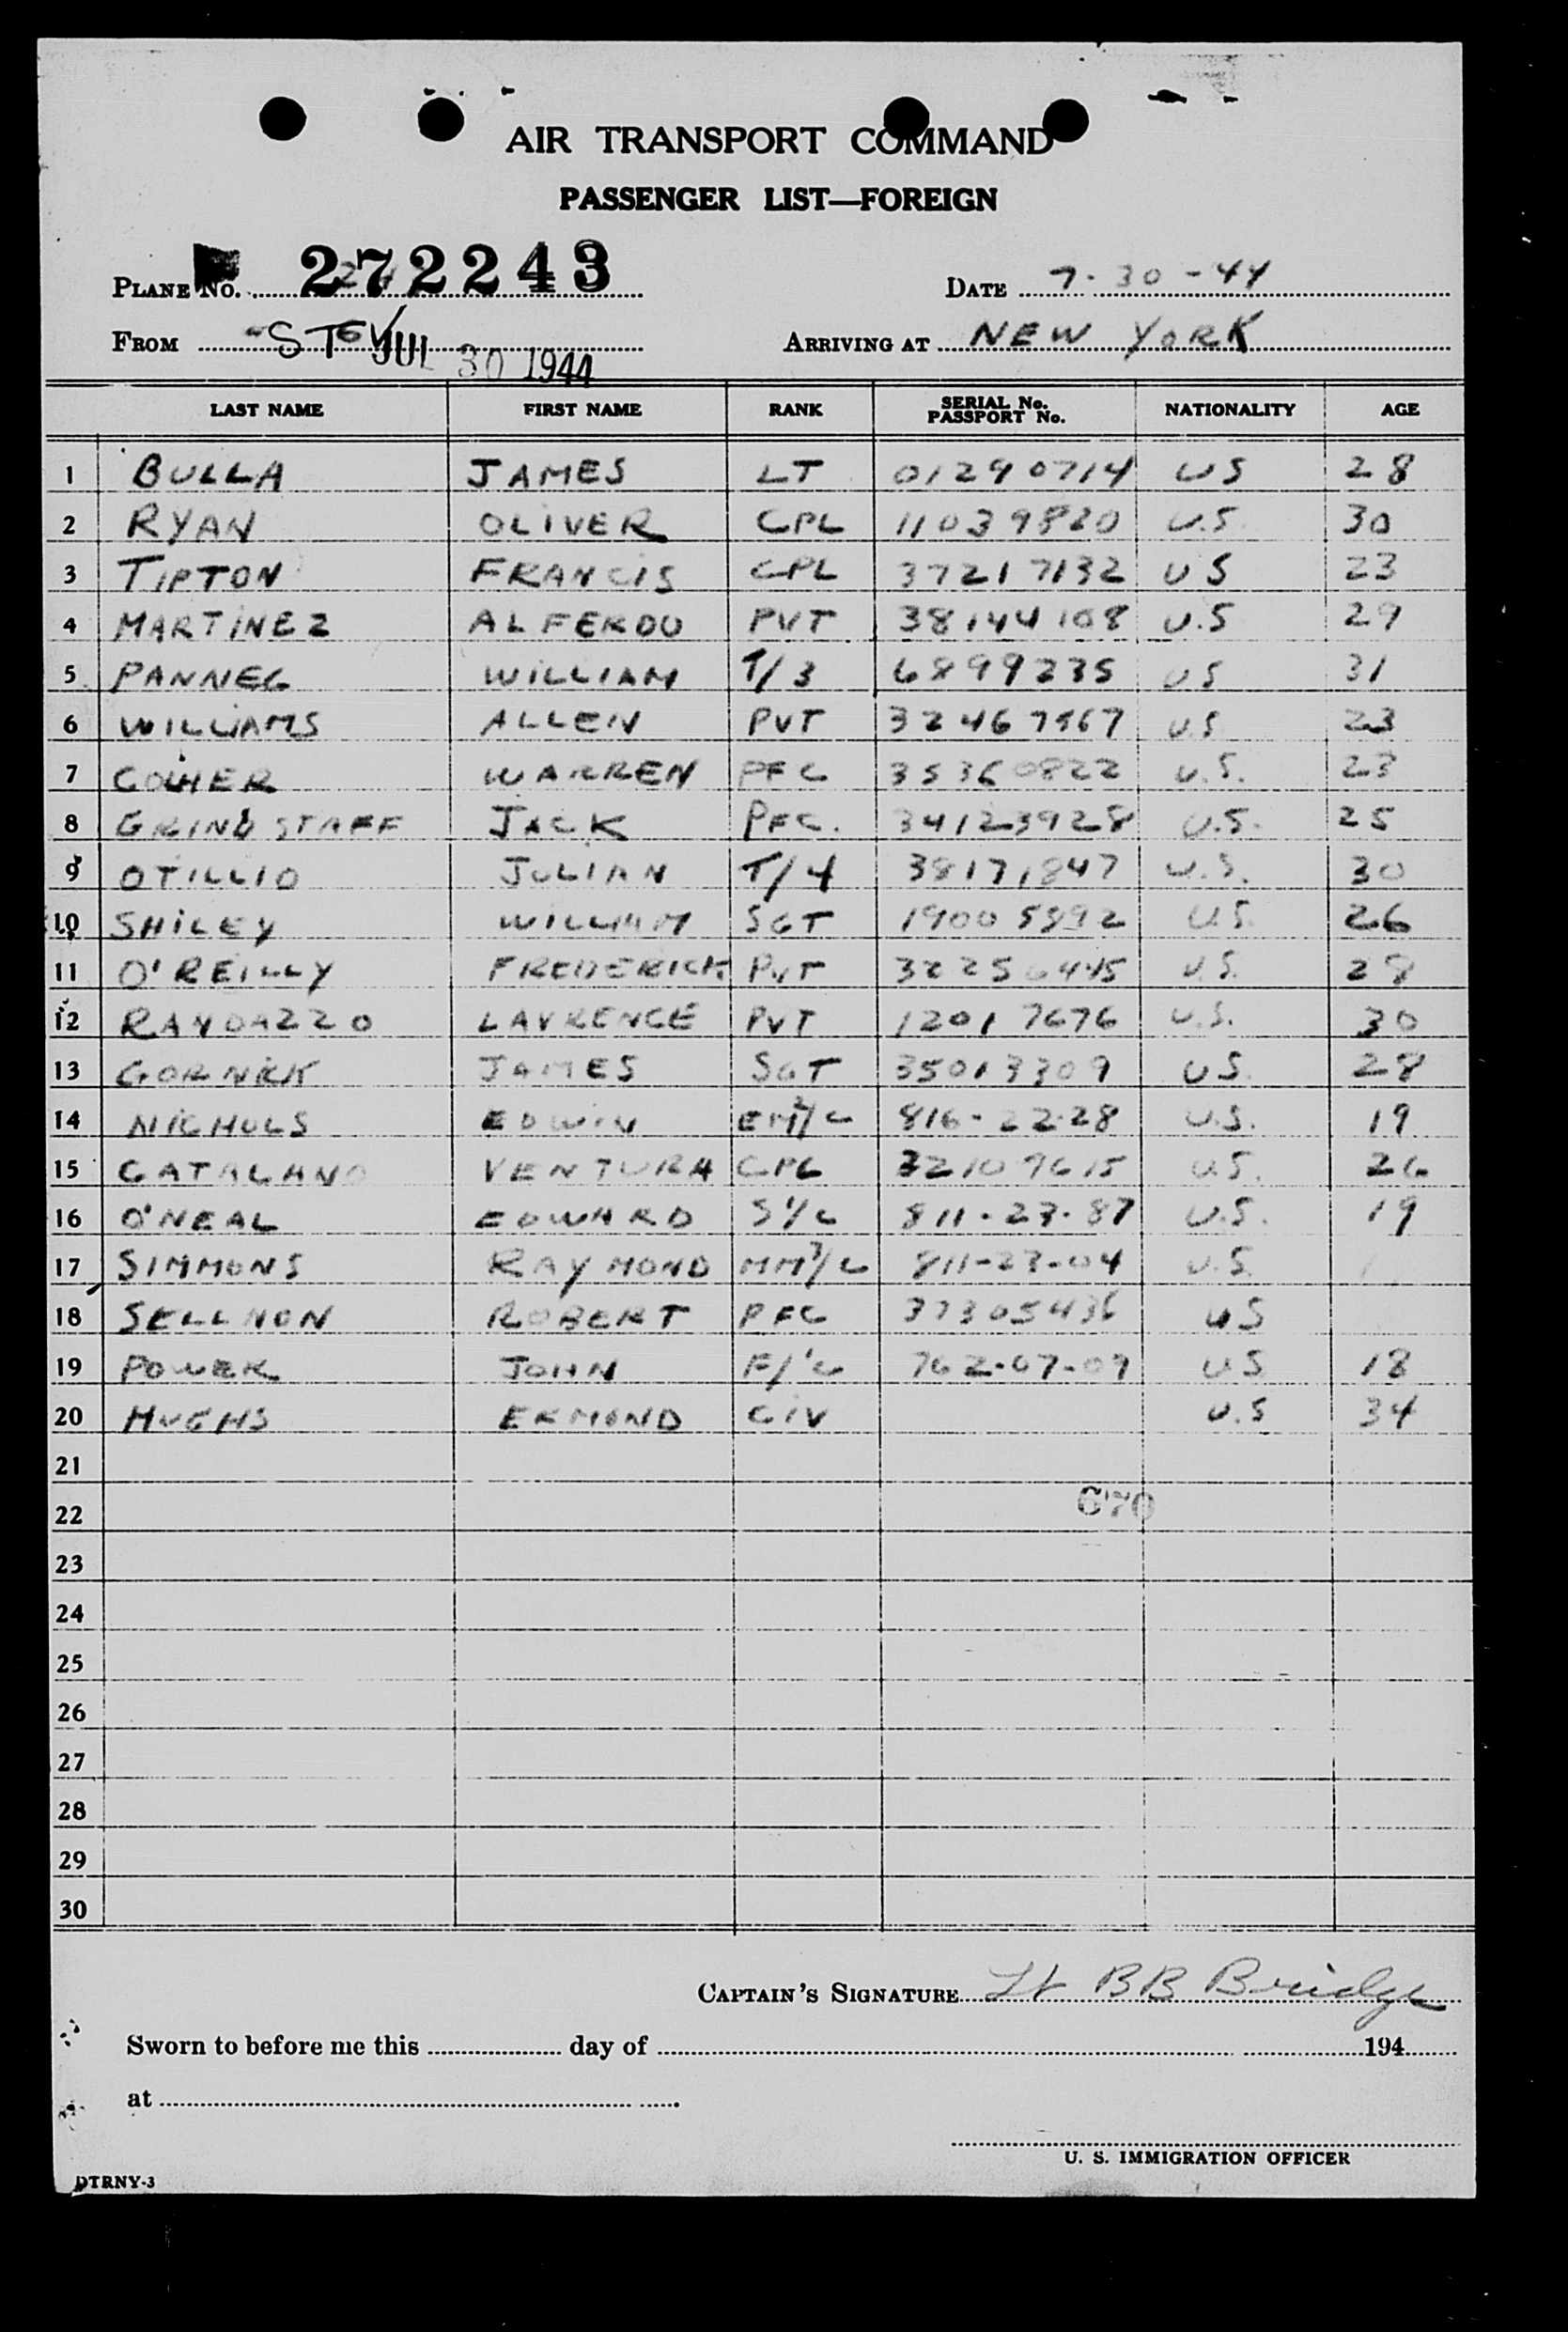 AIR TRANSPORT COMMAND
PASSENGER LIST—FOREIGN
PLANE No. 272243 DATE 7-30-44
FROM STEV ARRIVING AT NEW YORK
JUL 30 1944
LAST NAME FIRST NAME RANK SERIAL No. PASSPORT No. NATIONALITY AGE
1 BULLA JAMES LT 01290714 US 28
2 RYAN OLIVER CPL 11039820 U.S. 30
3 TIPTON FRANCIS CPL 37217132 US 23
4 MARTINEZ ALFERDO PVT 38144108 U.S 29
5 PANNEC WILLIAM T/3 6899235 US 31
6 WILLIAMS ALLEN PVT 32467567 U.S. 23
7 WARREN PFC 35360822 U.S. 23
8 GRINDSTAFF JACK PFC. 34123928 U.S. 25
9 OTILLIO JULIAN T/4 38171847 U.S. 30
10 SHILEY WILLIAM SGT 19005892 U.S. 26
11 O'REILLY FREDERICK PVT 32256445 U.S. 28
12 RANDAZZO LAVRENCE PVT 12017676 U.S. 30
13 GORNICK JAMES SGT 35013309 US. 28
14 NICHOLS EDWIN EM2/C 816-22-28 U.S. 19
15 CATALANO VENTURA CPL 32109615 U.S. 26
16 O'NEAL EDWARD S1/C 811-23-87 U.S. 19
17 SIMMONS RAYMOND MM3/C 811-23-04 U.S.
18 SELLMON ROBERT PFC 37305436 US
19 POWER JOHN F1/C 762-67-09 US 18
20 HUGHS ERMOND CIV U.S 34
21
22 670
23
24
25
26
27
28
29
30
CAPTAIN'S SIGNATURE Lt BB Bridge
Sworn to before me this day of 194
at
U. S. IMMIGRATION OFFICER
DTRNY-3